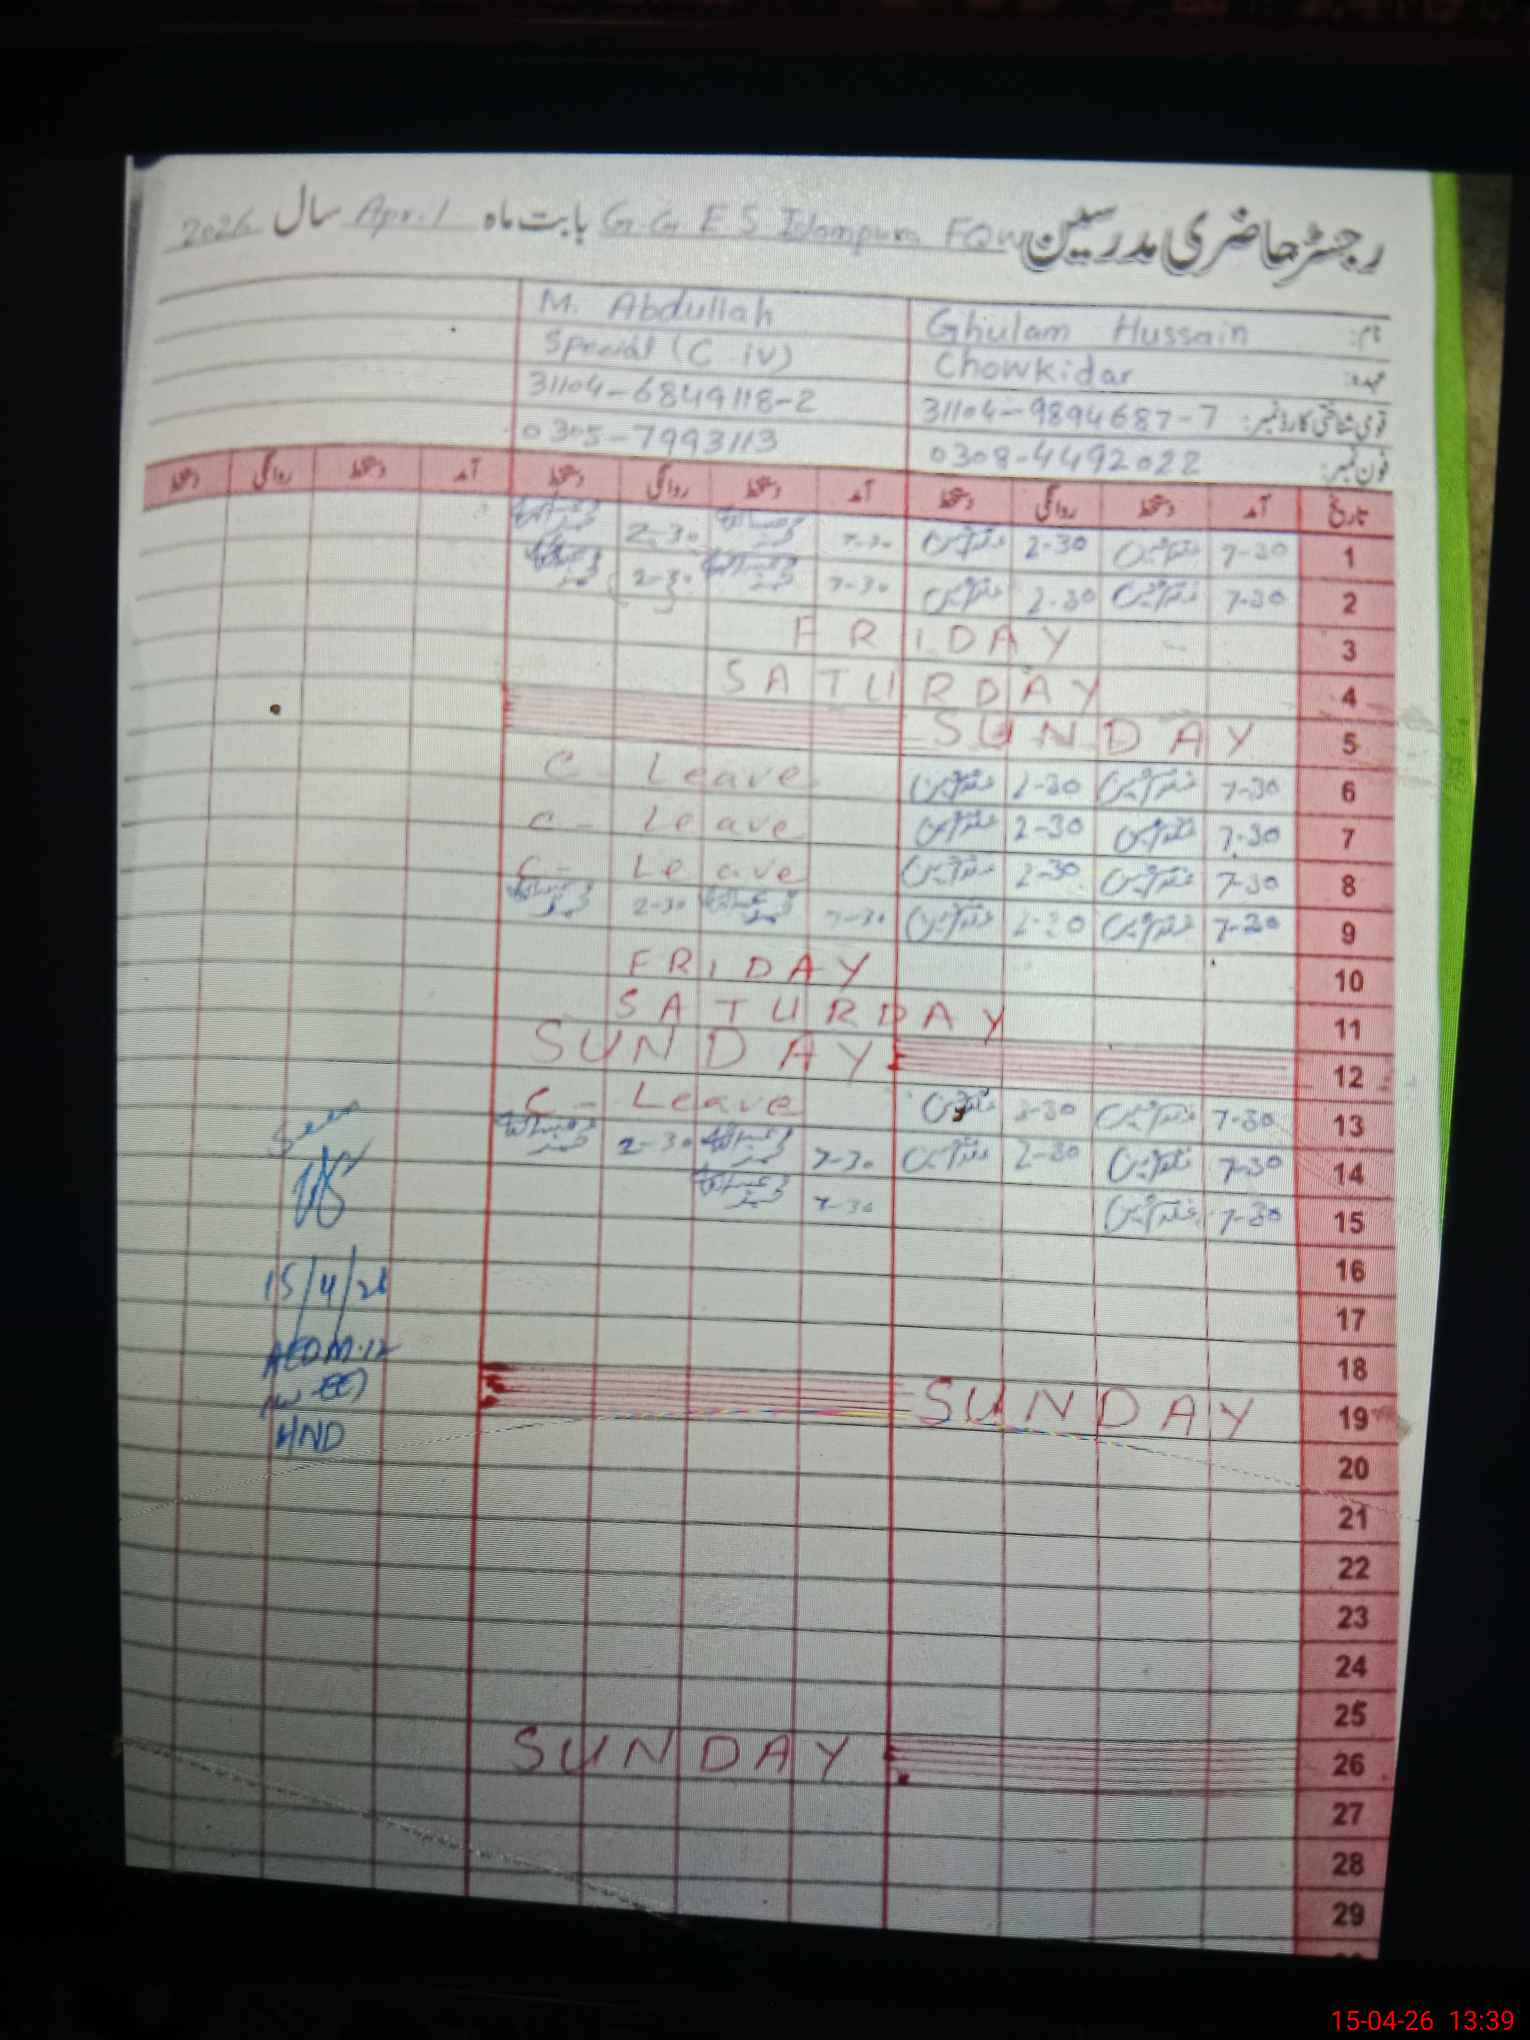 رجسٹر حاضری مدرسین G.G E S Islampura FQW بابت ماہ April سال 2026
نام: Ghulam Hussain M. Abdullah
عہدہ: Chowkidar Special (C iv)
قومی شناختی کارڈ نمبر: 31104-9894687-7 31104-6849118-2
فون نمبر: 0308-4492022 0305-7993113
تاریخ آمد دستخط روانگی دستخط آمد دستخط روانگی دستخط آمد دستخط روانگی دستخط
1 7-30 2-30 7-30 2-30
2 7-30 2-30 7-30 2-30
3 FRIDAY
4 SATURDAY
5 SUNDAY
6 7-30 2-30 C- Leave
7 7-30 2-30 C- Leave
8 7-30 2-30 C- Leave
9 7-30 2-30 7-30 2-30
10 FRIDAY
11 SATURDAY
12 SUNDAY
13 7-30 2-30 C- Leave
14 7-30 2-30 7-30 2-30
15 7-30 7-30
16
17
18
19 SUNDAY
20
21
22
23
24
25
26 SUNDAY
27
28
29
Seen
15/4/26
AEO M-12
(W-EE)
HND
15-04-26 13:39